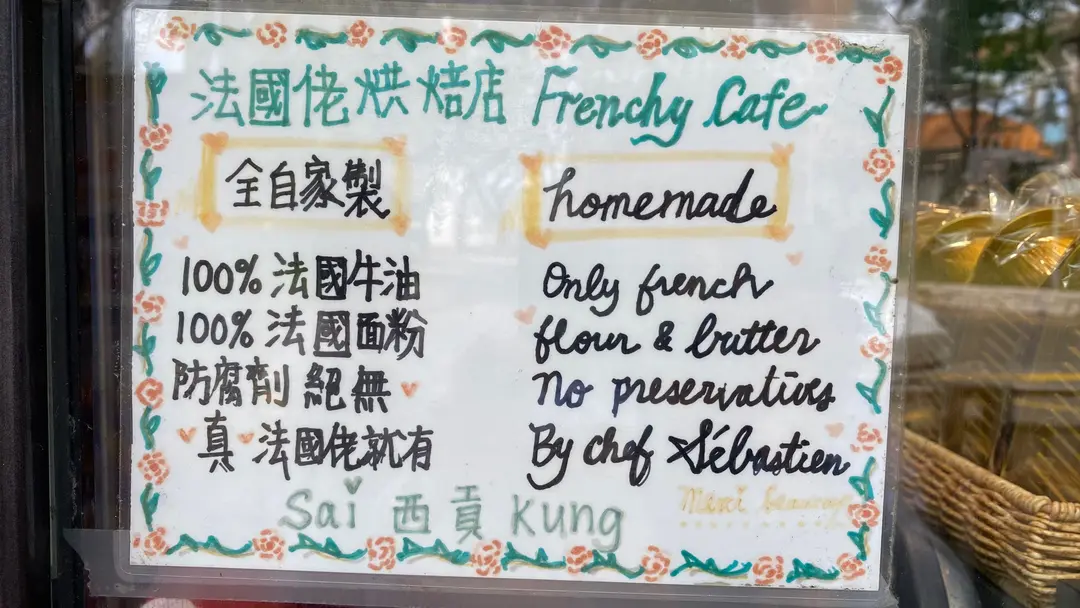 法國佬烘焙店 Frenchy Cafe
全自家製
homemade
100% 法國牛油
100% 法國面粉
防腐劑 絕無
真 法國佬就有
Only french
flour & butter
No preservatives
By chef Sébastien
Sai 西貢 Kung
Merci beaucoup